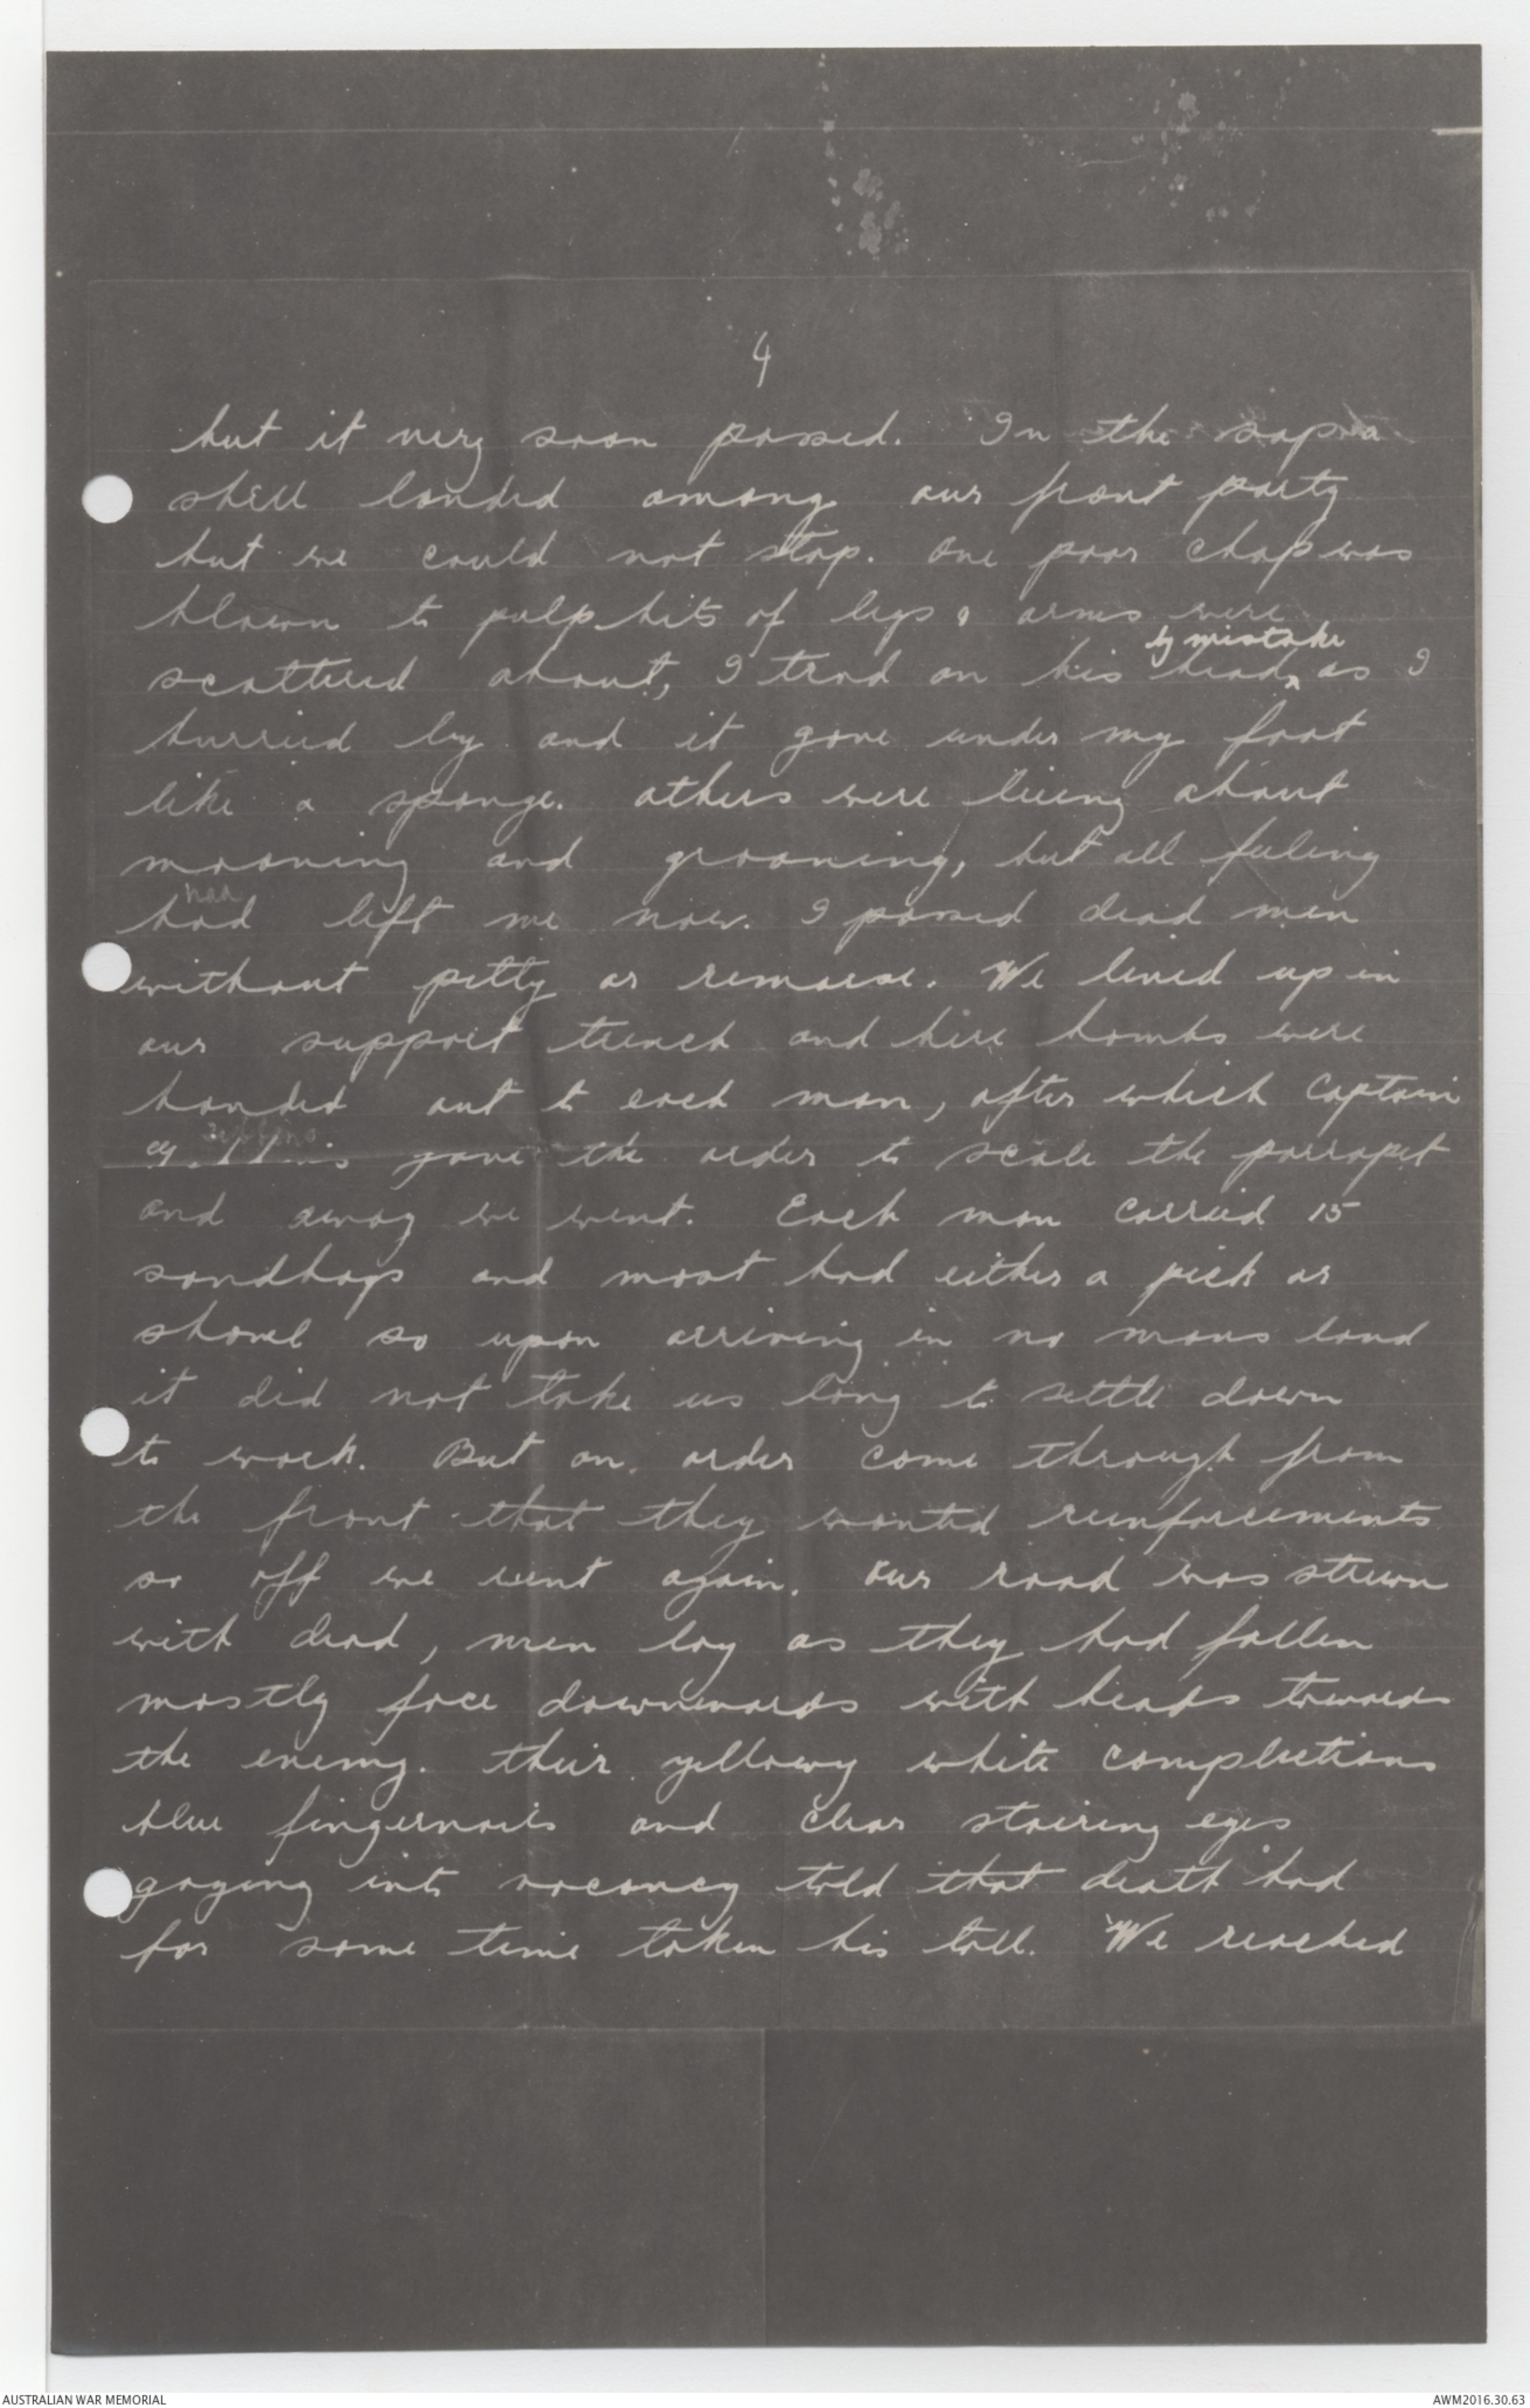 4
but it very soon passed. In the sap a
shell landed among our front party
but we could not stop. One poor chap was
blown to pulp bits of legs & arms were
by mistake
scattered about, I trod on his head as I
hurried by and it gave under my foot
like a sponge. Others were lieing about
moaning and groaning, but all feeling
had
had left me now. I passed dead men
without pitty or remorse. We lined up in
our support trench and here bombs were
handed out to each man, after which Captain
Gibbins
gave the order to scale the parrapet
and away we went. Each man carried 15
sandbags and most had either a pick or
shovel so upon arriving in no mans land
it did not take us long to settle down
to work. But an order come through from
the front that they wanted reinforcements
so off we went again. Our road was strewn
with dead, men lay as they had fallen
mostly face downwards with heads towards
the enemy. Their yellowy white complections
blue fingernails and clear stairing eyes
gazing into vacancy told that death had
for some time taken his toll. We reached
AUSTRALIAN WAR MEMORIAL
AWM2016.30.63